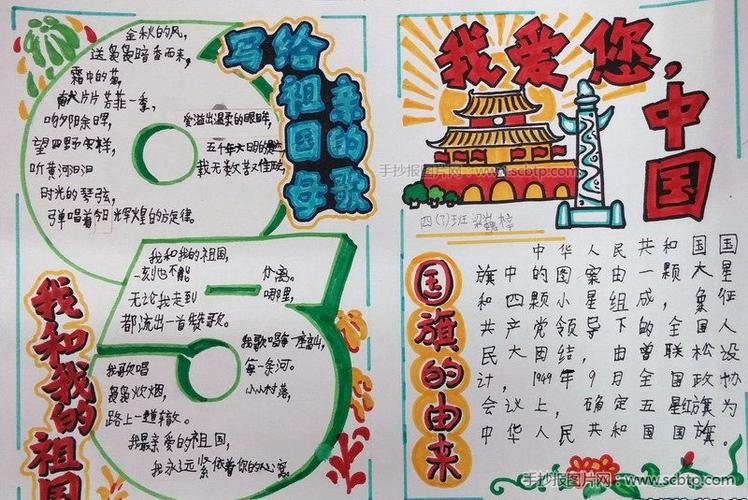 金秋的风,
送袅袅暗香而来,
霜中的菊,
片片芳菲一季,
响夕阳余晖,
望四野
听黄河汩汩
时光的琴弦,
弹唱着今日辉煌的旋律。
爱溢出温柔的眼眸
五千年文明的
我无数
写给
祖国母
亲的歌
我和我的祖国,
一刻也不能 分离。
无论我走到 哪里,
都流出一首赞歌。
我歌唱每一座高山,
每一条河。
我歌唱
袅袅炊烟, 小小村落,
路上一道辙。
我最亲爱的祖国,
我永远紧依着你的心窝
我和我的祖国
我爱您,
中国
手抄报图片网:www.scbtp.com
四(7)班 梁
国旗的由来
中华人民共和国国
旗中的图案由一颗大星
和四颗小星组成,象征
共产党领导下的全国人
民大团结,由曾联松设
计,1949年9月全国政协
会议上,确定五星红旗为
中华人民共和国国旗。
手抄报图片网:www.scbtp.com